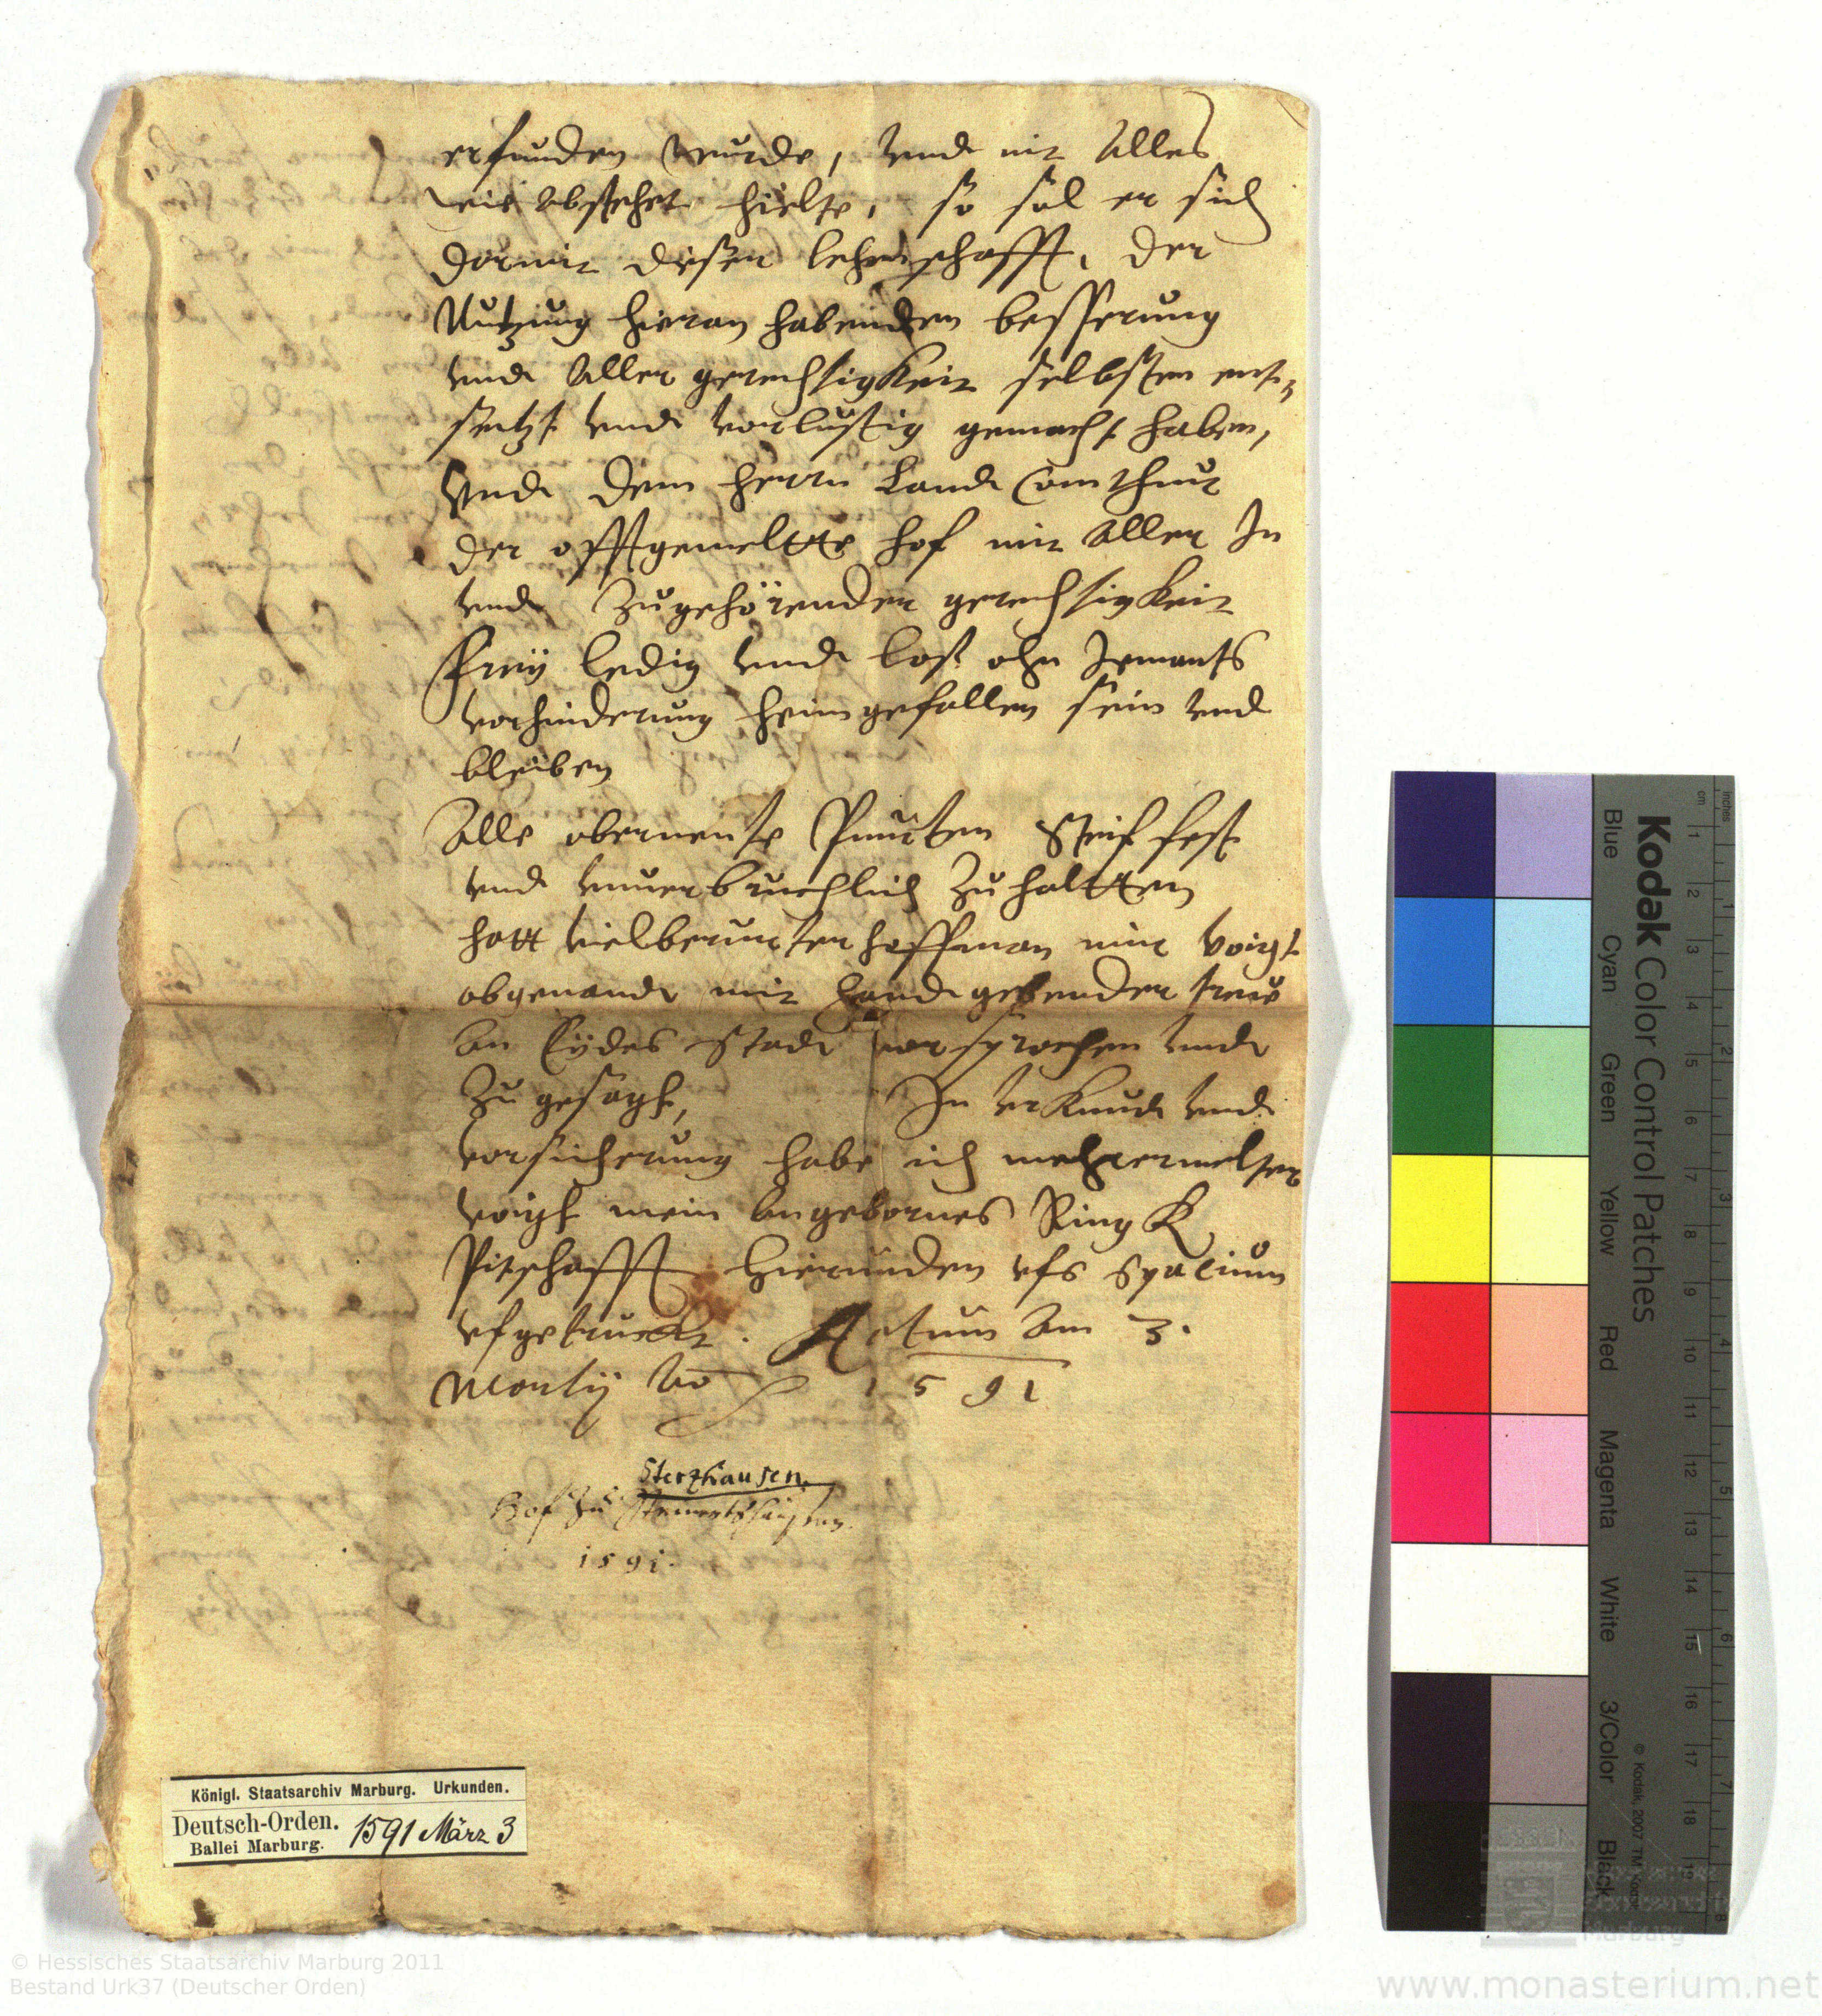 erfunden wurde, vnd nit Alles
wie obstehet hielte, so sol er sich
darmit dießer lehenschafft, der
Nutzung hieran habenden besserung
vnd Aller gerechtigkeit selbsten ent-
setzt vnd vorlustig gemacht haben,
Vnd dem herrn Land Comthur
der offtgemeltte hof mit Aller In
vnd Zugehörender gerechtigkeit
Freÿ ledig vnd loß ohn Jemants
vorhinderung heimgefallen sein vnd
bleiben
Alle obernente Puncten Steif fest
vnd vnuerbruchlich Zu haltten
hatt vielberurter hoffman mir Voigt
obgenand mit handgebender trew
an Eÿdes Stadt vorsprochen vnd
Zugesagt, In vrkund vnd
vorsicherung habe ich mehrermelter
voigt mein angebornes Ringk
Pitschafft hierunden vfs Spacium
vfgetruckt. Actum Am 3.
Martij Ao 1591
Sterzhausen.
Hof Zu
1591.
Königl. Staatsarchiv Marburg. Urkunden.
Deutsch-Orden.
Ballei Marburg. 1591 März 3
Kodak Color Control Patches
Blue Cyan Green Yellow Red Magenta White 3/Color Black
© Kodak, 2007 TM: Kodak
inches
cm
1 2 3 4 5 6 7 8 9 10 11 12 13 14 15 16 17 18 19
1 2 3 4 5 6 7 8
© Hessisches Staatsarchiv Marburg 2011
Bestand Urk37 (Deutscher Orden)
www.monasterium.net